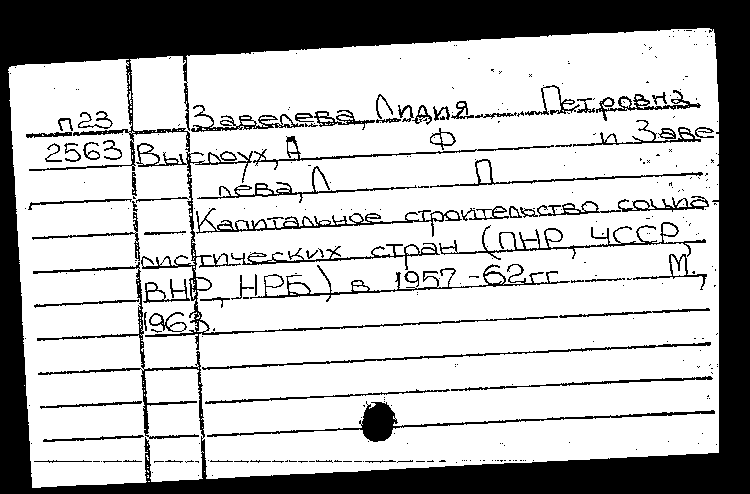 п23 Завелева, Лидия Петровна
2563 Выслоух, А Ф и Заве-
лева, Л П
Капитальное строительство социа-
листических стран (ПНР, ЧССР,
ВНР, НРБ) в 1957-62гг М.,
1963.